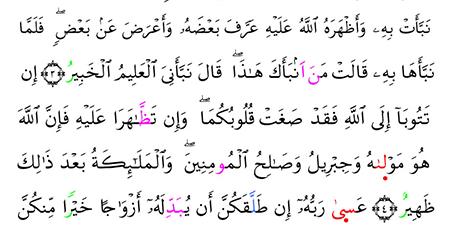 نَبَّأَتْ بِهِۦ وَأَظْهَرَهُ اللَّهُ عَلَيْهِ عَرَّفَ بَعْضَهُۥ وَأَعْرَضَ عَنۢ بَعْضٖۖ فَلَمَّا
نَبَّأَهَا بِهِۦ قَالَتْ مَنَ اَنۢبَأَكَ هَٰذَاۖ قَالَ نَبَّأَنِيَ الْعَلِيمُ الْخَبِيرُ ﴿٣﴾ إِن
تَتُوبَآ إِلَى اللَّهِ فَقَدْ صَغَتْ قُلُوبُكُمَاۖ وَإِن تَظَّٰهَرَا عَلَيْهِ فَإِنَّ اللَّهَ
هُوَ مَوْلَىٰهُ وَجِبْرِيلُ وَصَٰلِحُ الْمُومِنِينَۖ وَالْمَلَٰٓئِكَةُ بَعْدَ ذَٰلِكَ
ظَهِيرٌ ﴿٤﴾ عَسىٰ رَبُّهُۥٓ إِن طَلَّقَكُنَّ أَن يُبَدِّلَهُۥٓ أَزْوَٰجًا خَيْرًا مِّنكُنَّ